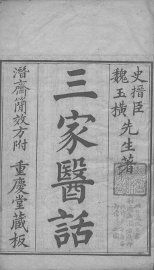 史搢臣
魏玉橫
先生著
三家醫話
潛齋簡效方附
重慶堂藏板